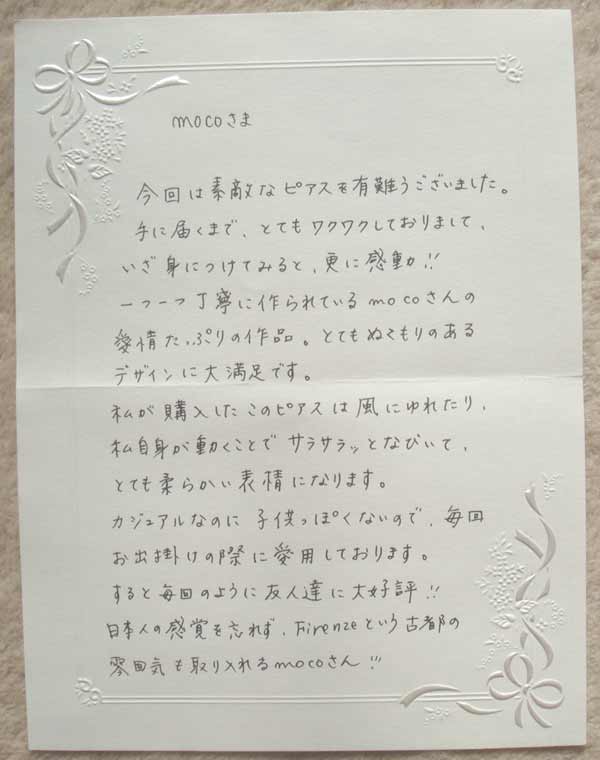 mocoさま
今回は素敵なピアスを有難うございました。
手に届くまで、とてもワクワクしておりまして、
いざ身につけてみると、更に感動!!
一つ一つ丁寧に作られているmocoさんの
愛情たっぷりの作品。とてもぬくもりのある
デザインに大満足です。
私が購入したこのピアスは風にゆれたり、
私自身が動くことでサラサラッとなびいて、
とても柔らかい表情になります。
カジュアルなのに子供っぽくないので、毎回
お出掛けの際に愛用しております。
すると毎回のように友人達に大好評!!
日本人の感覚を忘れず、Firenzeという古都の
雰囲気も取り入れるmocoさん!!